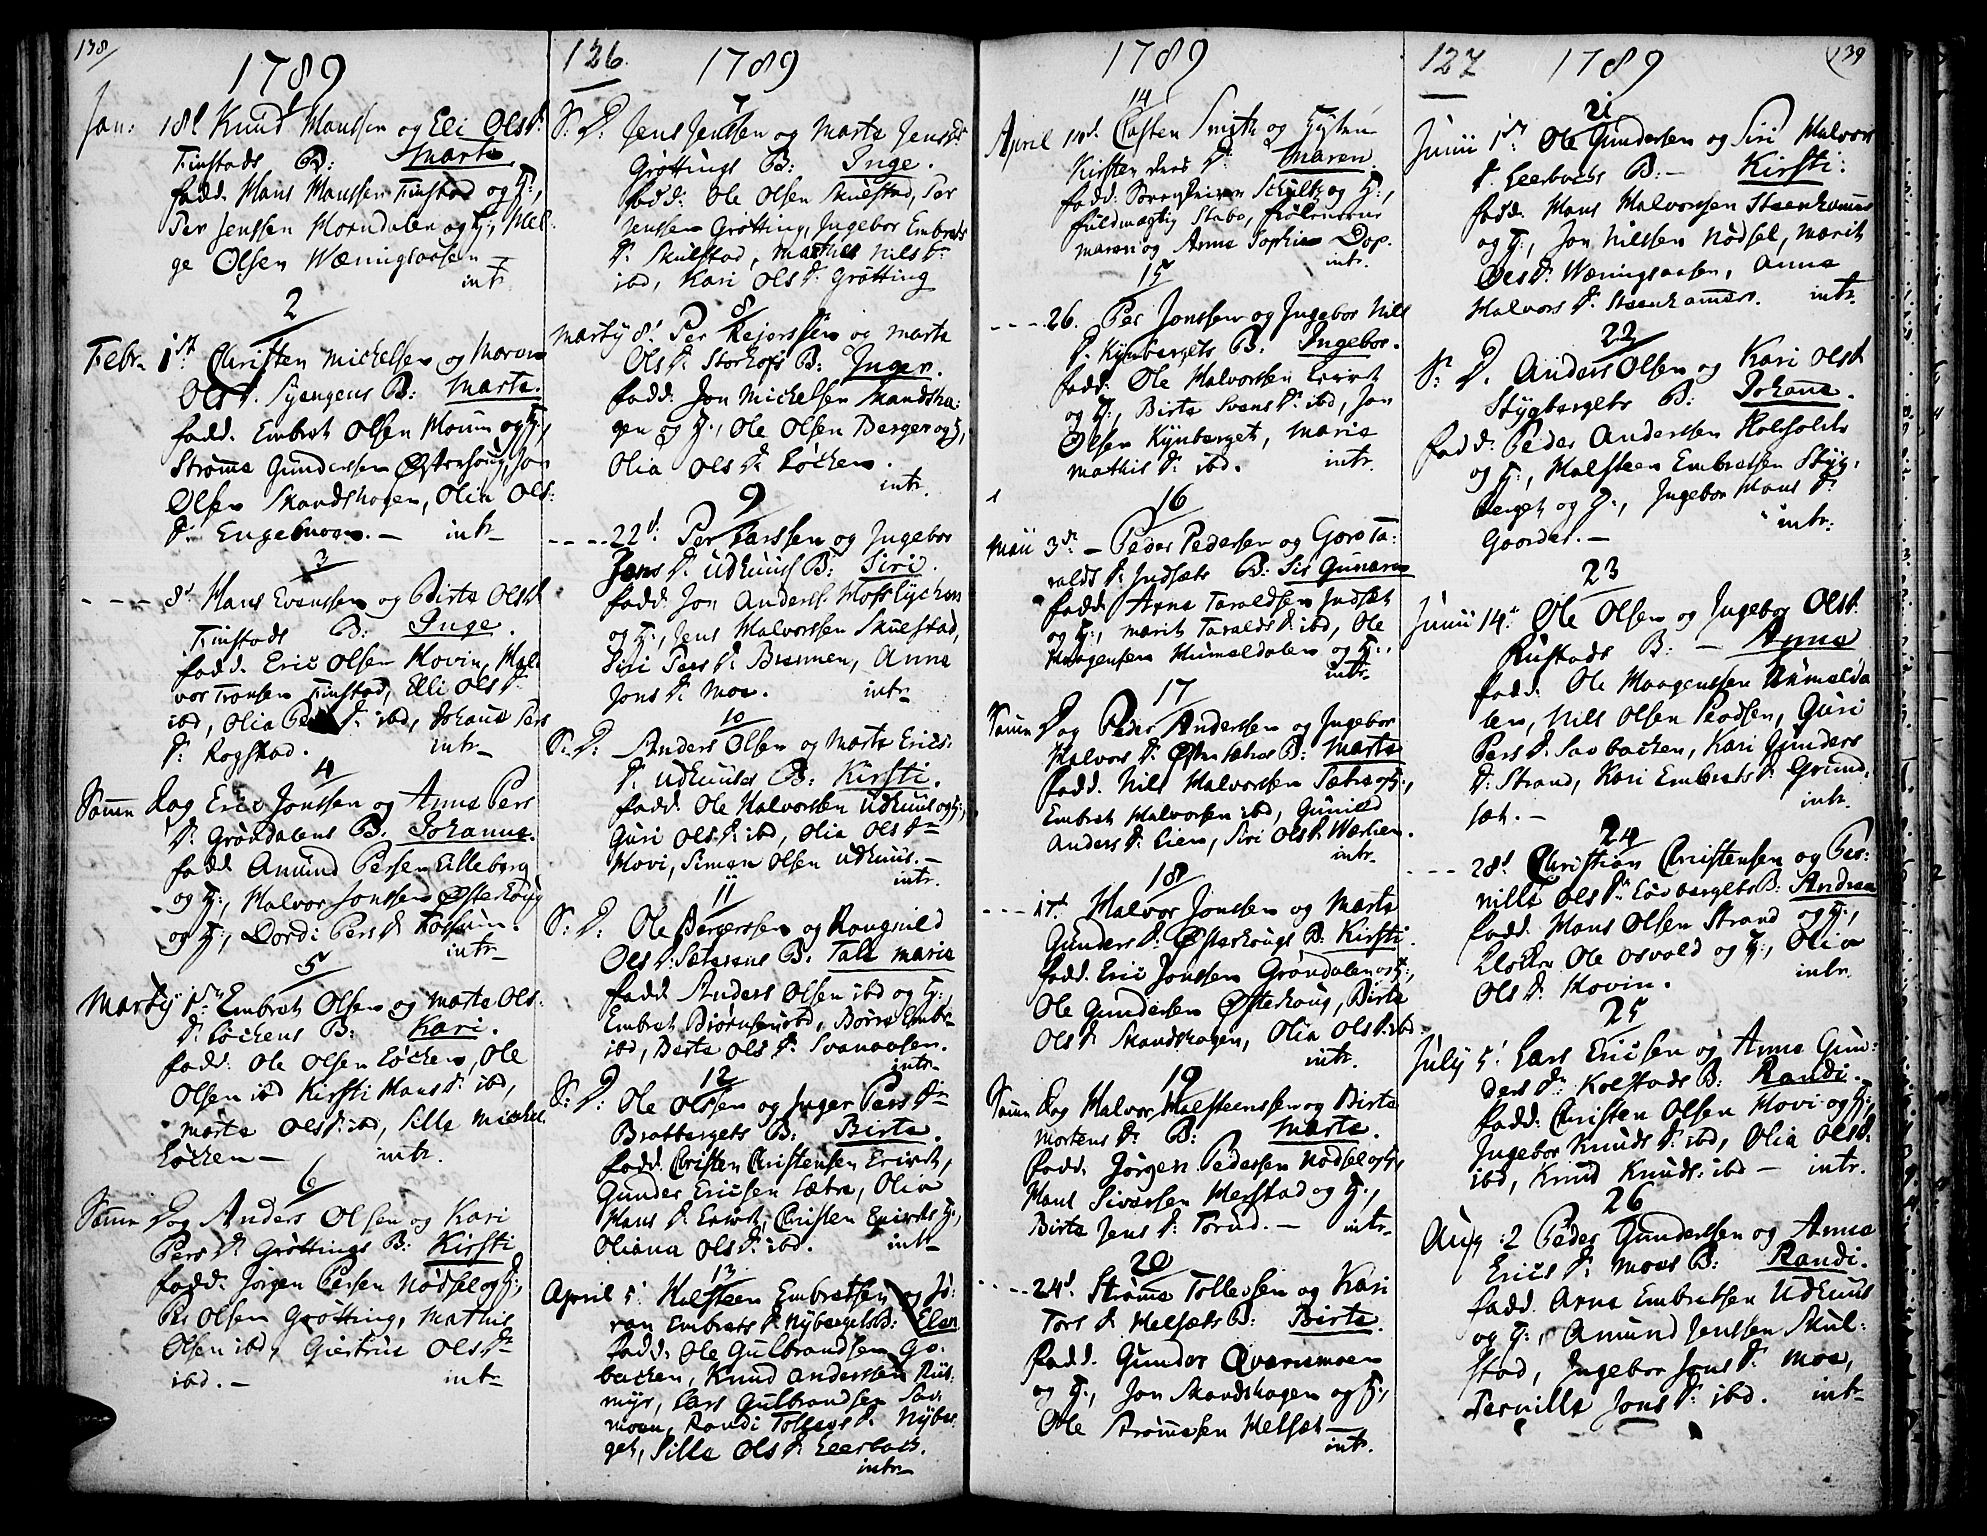 138/
1789
Jan: 18d Knud Hanssen og Eli Olsd.
Finstads B: Marte
fadd. Hans Hanssen Finstad og H.,
Per Jenssen Horndalen og H., Hel-
ge Olsen Wæningsaasen –
intr.
2
Febr. 1st Christen Michelsen og Maren
Olsd. Syengens B: Marte.
fadd. Embret Olsen Moum og H.,
Strømme Gunderssen Østerhoug, Jon
Olsen Skandshagen, Olia Ols:
D: Engebmoen. – intr
3
- - - - 8d Hans Evenssen og Birte Olsd.
Finstads B: Inge.
fadd. Eric Olsen Hovin, Hal
vor Finstad, Elli Ols D.
ibd, Olia Pers D. ibd, Johane Pers
D: Rogstad. intr
4
Samme Dag Eric Jonssen og Anne Pers
D: Grøndalens B. Johanne.
fadd Amund Persen Lilleborg
og H., Halvor Jonssen Østerhoug
og H., Dordi Pers D. Fossum.
intr
5
Marty 1st Embret Olsen og Marte Ols.
D. Løckens B: Kari.
fadd: Ole Olsen Løcken, Ole
Olsen ibd Kirsti Hans D. ibd,
Marte Ols D. ibd, Sille Mickel.
Løcken – intr.
6
Samme Dag Anders Olsen og Kari
Pers D. Grøttings B: Kirsti
fadd. Jørgen Persen Nødsel og H.,
Per Olsen Grøtting, Mathis
Olsen ibd, Giertrue Ols D.
ibd. – intr
126.
1789
7
S: D: Jens Jenssen og Marte Jensd.
Grøttings B: Inge.
fadd: Ole Olsen Skulstad, Per
Jenssen Grøtting, Ingebor Embrets
D. Skulstad, Mathis Nils D.
ibd, Kari Ols D. Grøtting
8
Marty 8d Per Rejerssen og Marte
Ols D. Storhofs B: Inger.
fadd. Jon Michelsen Skandsha:
gen og H., Ole Olsen Bergen og H,
Olia Ols D. Løcken.
intr.
9
- - - - 22d Per Larssen og Ingebor
Jens D. Udkuus B: Siri.
fadd. Jon Anders. Hofslychen
og H., Jens Halvorssen Skulstad,
Siri Pers D. Brennen, Anne
Jons D. Moe. intr
10
S: D: Anders Olsen og Marte Erics:
D. Udkuuses B: Kirsti.
fadd. Ole Halvorssen Udkuus og H.,
Guri Ols D. ibd, Olia Ols D.
Hovi, Simen Olsen Udkuus. –
intr.
11
S: D: Ole Børerssen og Rangnild
Ols D. Sæterens B. Tale Marie
fadd Anders Olsen ibd og H.,
Embret Biørnsen ibd, Børre Embr-
ibd, Berte Ols D. Svenaasen.
intr
12
S: D: Ole Olssen og Inger Pers D.
Bratbergets B: Birte.
fadd. Christen Christensen Ervert,
Gunder Ericsen Sætre, Olia
Hans D. Ervert, Christen Enirds H.,
Oliana Ols D. ibd. intr
13
April 5' Halsteen Embretsen og Jø:
ran Embrets D. Nybergets B: Elen
fadd: Ole Gulbrandsen Go:
backen, Knud Anderssen Rus:
myr, Lars Gulbrandsen Sør
moen, Randi Tollevs D. Nyber
get, Sille Ols D. Leerbach.
intr
1789
14
April 14d. Casten Smith og
Kirsten D. Maren.
fadd: Schultz og H.,
fuldmægtig Stabo,
Maren og Anne Sophia Dop.
intr.
15
- - - - 26. Per Jonssen og Ingebor Nils
D. Kynbergets B. Ingebor.
fadd: Ole Halvorssen Ervert
og H., Birte Svens D. ibd, Jon
Olsen Kynberget, Marie
Mathis D. ibd. intr.
16
Maii 3d – Peder Pedersen og Goro Ta:
ralds D. Indsæts B: Siv Gunarra
fadd Arne Taraldsen Indsæt
og H., Marit Taralds D. ibd, Ole
Haagensen Humeldalen og H.,
intr
17
Samme Dag Peder Anderssen og Ingebor
Halvors D. Østersætres B: Marte
fadd. Nils Halvorssen Sætre og H.,
Embret Halvorsen ibd, Gunild
Anders D. Lien, Siri Ols D. Wæslien.
intr.
18
- - - 17d. Halvor Jonssen og Marte
Gunders D: Østerhougs B: Kirsti.
fadd. Eric Jonssen Grøndalen og H.,
Ole Gundersen Østerhoug, Birte
Ols D. Skandshagen, Olia Ols D. ibd.
intr.
19
Samme Dag Halvor Halsteenssen og Birte
Mortens D: B: Marte.
fadd. Jørgen Pedersen Nødsel og H,
Hans Siverssen Herstad og H.,
Birte Jens D. Torud. – intr
20
- - - 24d. Strømme Tollevsen og Kari
Tors D. Helsæts B: Birte.
fadd. Gunder Qværnmoen
og H., Jon Skandshagen og H.,
Ole Strømmesen Helsæt –
intr.
127
1789
139
21
Junii 1st Ole Gundersen og Siri Halvors
D. Leerbachs B: – Kirsti.
fadd. Hans Halvorssen Steenhammer
og H., Jon Nilssen Nødsel, Marit
Ols D. Wæningsaasen, Anne
Halvors D. Steenhammer. intr.
22
S: D. Anders Olsen og Kari Olsd
Stygbergets B: Johane.
fadd: Peder Anderssen
og H., Halsteen Embretsen Styg:
berget og H., Ingebor Hans D.
Goorder. – intr:
23
Junii 14d Ole Olsen og Ingebor Olsd.
Rustads B: – Anne
fadd: Ole Haagenssen Humelda
len, Nils Olsen Plodsen, Guri
Pers D. Saobacken, Kari Gunders
D. Strand, Kari Embrets D. Grund
sæt. – intr.
24
- - - - 28d Christian Christensen og Per:
nille Ols D. Løvbergets B: Andrea
fadd. Hans Olsen Strand og H.,
Ole Osvold og H., Olia
Ols D. Hovin. intr.
25
July 5' Lars Ericsen og Anne Gun:
ders D. Kolstads B: Randi.
fadd: Christen Olsen Hovi og H.,
Ingebor Knuds D. ibd, Olia Olsd.
ibd, Knud Knuds: ibd – intr.
26
Aug: 2 Peder Gunderssen og Anne
Erics D. Moes B: Randi.
fadd. Arne Embretsen Udkuus
og H., Amund Jenssen Skul:
stad, Ingebor Jons D. Moe,
Pernille Jons D. ibd. intr